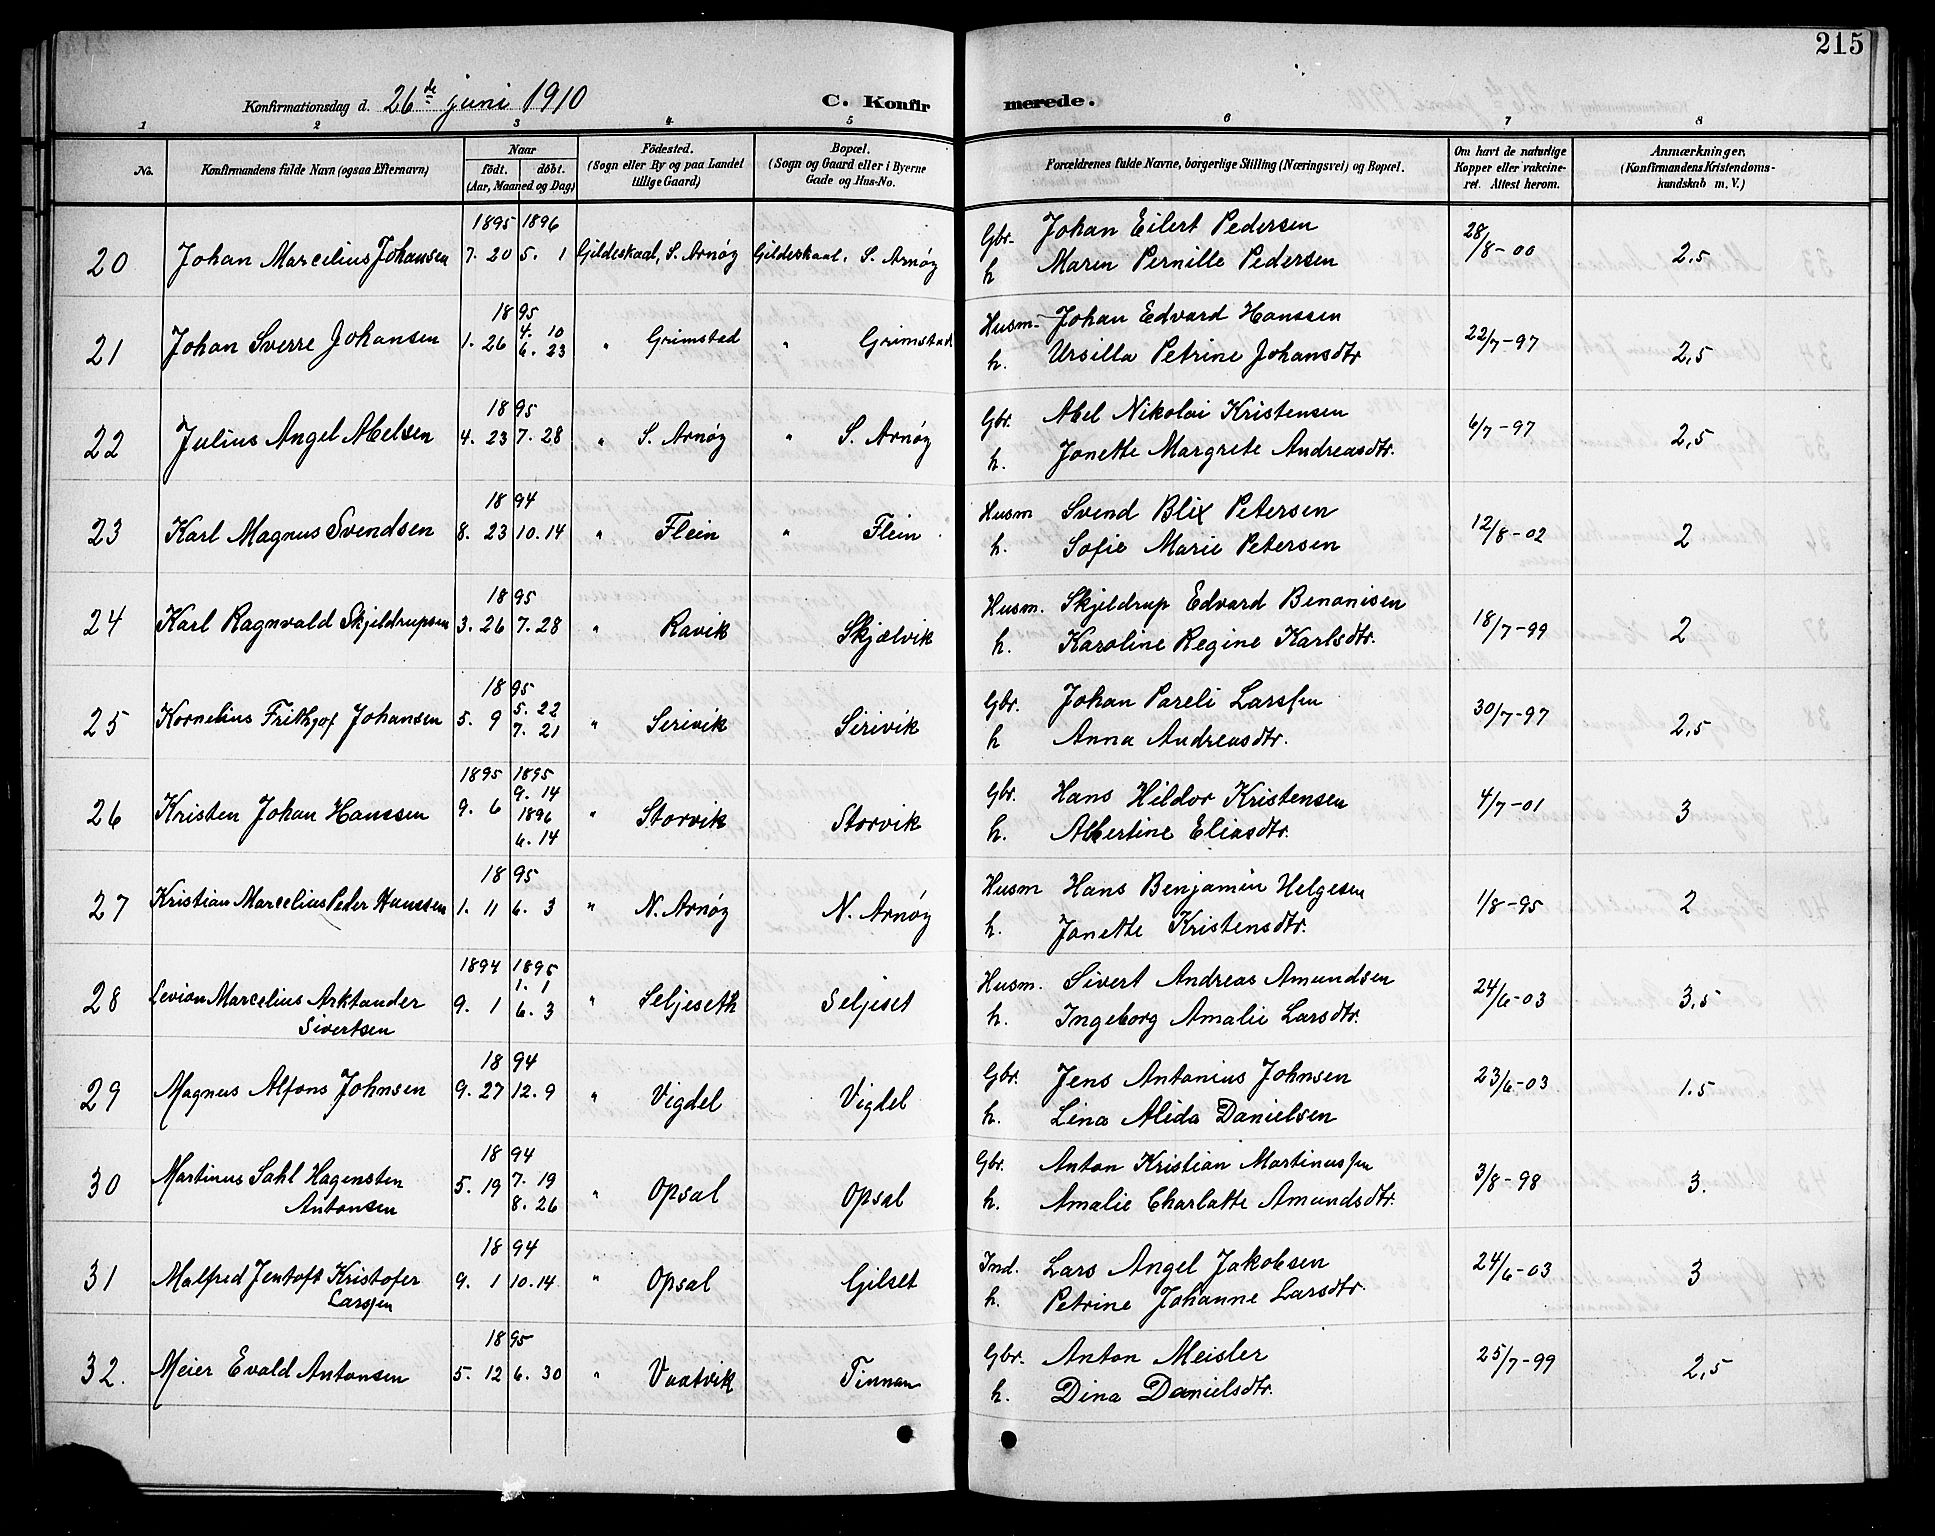 215
Konfirmationsdag d. 26de juni 1910 C. Konfirmerede.
1 2 3 4 5 6 7 8
No. Konfirmandens fulde Navn (ogsaa Efternavn) Naar födt. döbt. (Aar, Maaned og Dag) Födested. (Sogn eller By og paa Landet tillige Gaard) Bopæl. (Sogn og Gaard eller i Byerne Gade og Hus-No. Forældrenes fulde Navne, borgerlige Stilling (Næringsvei) og Bopæl. Om havt de naturlige Kopper eller vakcineret. Attest herom. Anmærkninger, (Konfirmandens Kristendomskundskab m. V.)
1895 1896
20 Johan Marcelius Johansen 7. 20 5. 1 Gildeskaal, S. Arnøy Gildeskaal, S. Arnøy Gbr. Johan Eilert Pedersen 28/8-00 2,5
h Maren Pernille Pedersen
1895
21 Johan Sverre Johansen 1. 26 4. 10 6. 23 " Grimstad " Grimstad Husm. Johan Edvard Hanssen 22/7-97 2,5
h. Ursilla Petrine Johansdtr
1895
22 Julius Angel Abelsen 4. 23 7. 28 " S. Arnøy " S. Arnøy Gbr. Abel Nikolai Kristensen 6/7-97 2,5
h. Jonette Margrete Andreasdtr.
1894
23 Karl Magnus Svendsen 8. 23 10. 14 " Flein " Flein Husm Svend Blix Petersen 12/8-02 2
h. Sofie Marie Petersen
1895
24 Karl Ragnvald Skjeldrupsen 3. 26 7. 28 " Ravik Skjælvik Husm. Skjeldrup Edvard Benonisen 18/7-99 2
h. Karoline Regine Karlsdtr.
1895
25 Kornelius Frithjof Johansen 5. 9 5. 22 7. 21 " Serivik Sirivik Gbr. Johan Pareli Larssen 30/7-97 2,5
h Anna Andreasdtr.
1895 1895
26 Kristen Johan Hanssen 9. 6 9. 14 1896 6. 14 " Storvik Storvik Gbr. Hans Hildor Kristensen 4/7-01 3
h. Albertine Eliasdtr.
1895
27 Kristian Marcelius Peder Hanssen 1. 11 6. 3 " N. Arnøy N. Arnøy Husm Hans Benjamin Helgesen 1/8-95 2
h. Jonette Kristensdtr.
1894 1895
28 Levion Marcelius Arktander 9. 1 1. 1 6. 3 " Seljeseth Seljeset Husm. Sivert Andreas Amundsen 24/6-03 3,5
Sivertsen h. Ingeborg Amalie Larsdtr.
1894
29 Magnus Alfons Johnsen 9. 27 12. 9 " Vigdel Vigdel Gbr. Jens Antonius Johnsen 23/6-03 1.5
h. Lina Alida Danielsen
1894
30 Martinus Sahl Hagensten 5. 19 7. 19 8. 26 " Opsal Opsal Gbr. Anton Kristian Martinussen 3/8-98 3.
Antonsen h. Amalie Charlotte Amundsdtr.
1894
31 Malfred Jentoft Kristofer 9. 1 10. 14 " Opsal Gilset Ind. Lars Angel Jakobsen 24/6-03 3
Larssen h. Petrine Johanne Larsdtr.
1895
32. Meier Evald Antonsen 5. 12 6. 30 " Vaatvik Finnan Gbr. Anton Meisler 25/7-99 2,5
h. Dina Danielsdtr.